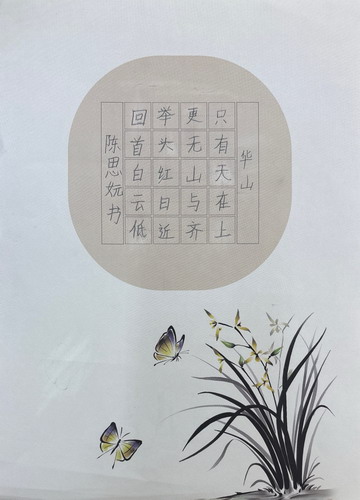 华山
只有天在上
更无山与齐
举头红日近
回首白云低
陈思妧书